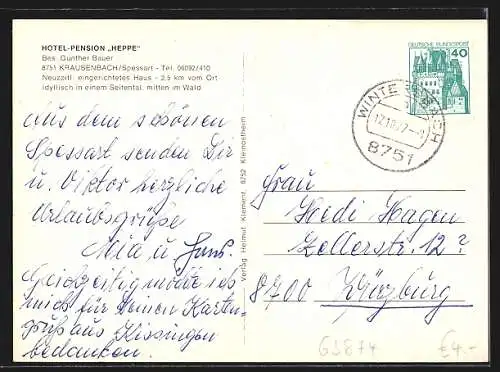 HOTEL-PENSION „HEPPE"
Bes. Gunther Bauer
8751 KRAUSENBACH/Spessart - Tel. 06092/410
Neuzeitl. eingerichtetes Haus - 2,5 km vom Ort
idyllisch in einem Seitental, mitten im Wald
Aus dem schönen
Spessart senden Dir
u. Viktor herzliche
Urlaubsgrüße
Mia u. Hans.
Gleichzeitig möchte ich
mich für Deinen Karten-
gruß aus Kissingen
bedanken.
Verlag Helmut Klement, 8752 Kleinostheim
DEUTSCHE BUNDESPOST
40
8751
Frau
Heidi Hagen
Zellerstr. 12?
8700 Würzburg
G3874
€4.-